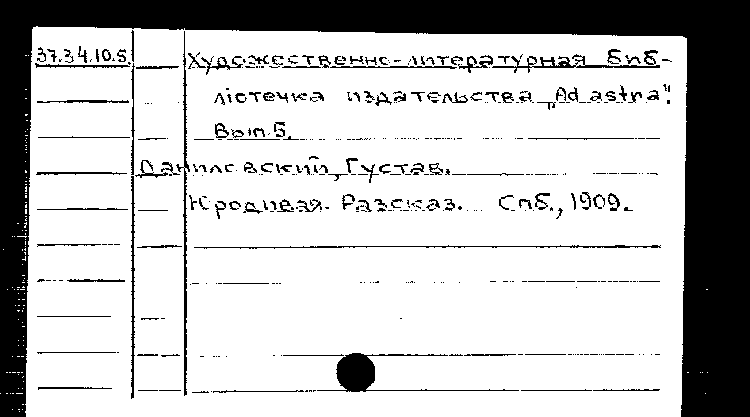 37.34.10.5. Художественно-литературная биб-
ліотечка издательства „Ad astra“.
Вып. 5.
Даниловский, Густав.
Юродивая. Разсказ. Спб., 1909.